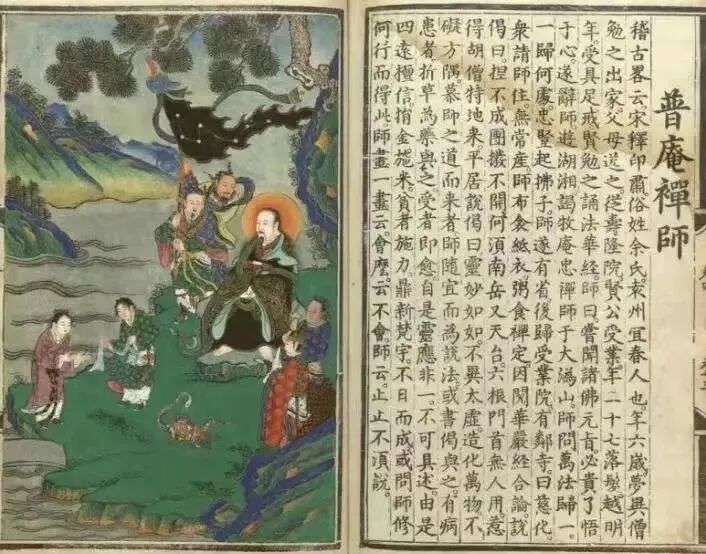 普庵禪師
稽古畧云宋釋印肅俗姓余氏袁州宜春人也年六歲夢異僧
勉之出家父母送之從壽隆院賢公受業年二十七落髮越明
年受具足戒賢勉之誦法華經師曰嘗聞諸佛元旨必貴了悟
于心遂辭師遊湖湘謁牧庵忠禪師于大溈山師問萬法歸一
一歸何處忠竪起拂子師遂有省後歸受業院有鄰寺曰慈化
衆請師住無常産師布衾紙衣粥食禪定因閱華嚴經合論說
偈曰捏不成團撥不開何須南岳又天台六根門首無人用惹
得胡僧特地来平居說偈曰靈妙如如不異太虛造化萬物不
礙方隅慕師之道而来者師隨宜而為說法或書偈與之有病
患者折草為藥與之受者即愈自是靈應非一不可具述由是
四逺檀信捐金施米貧者施力鼎新梵宇不日而成或問師修
何行而得此師畫一畫云會麽云不會師云止止不須說